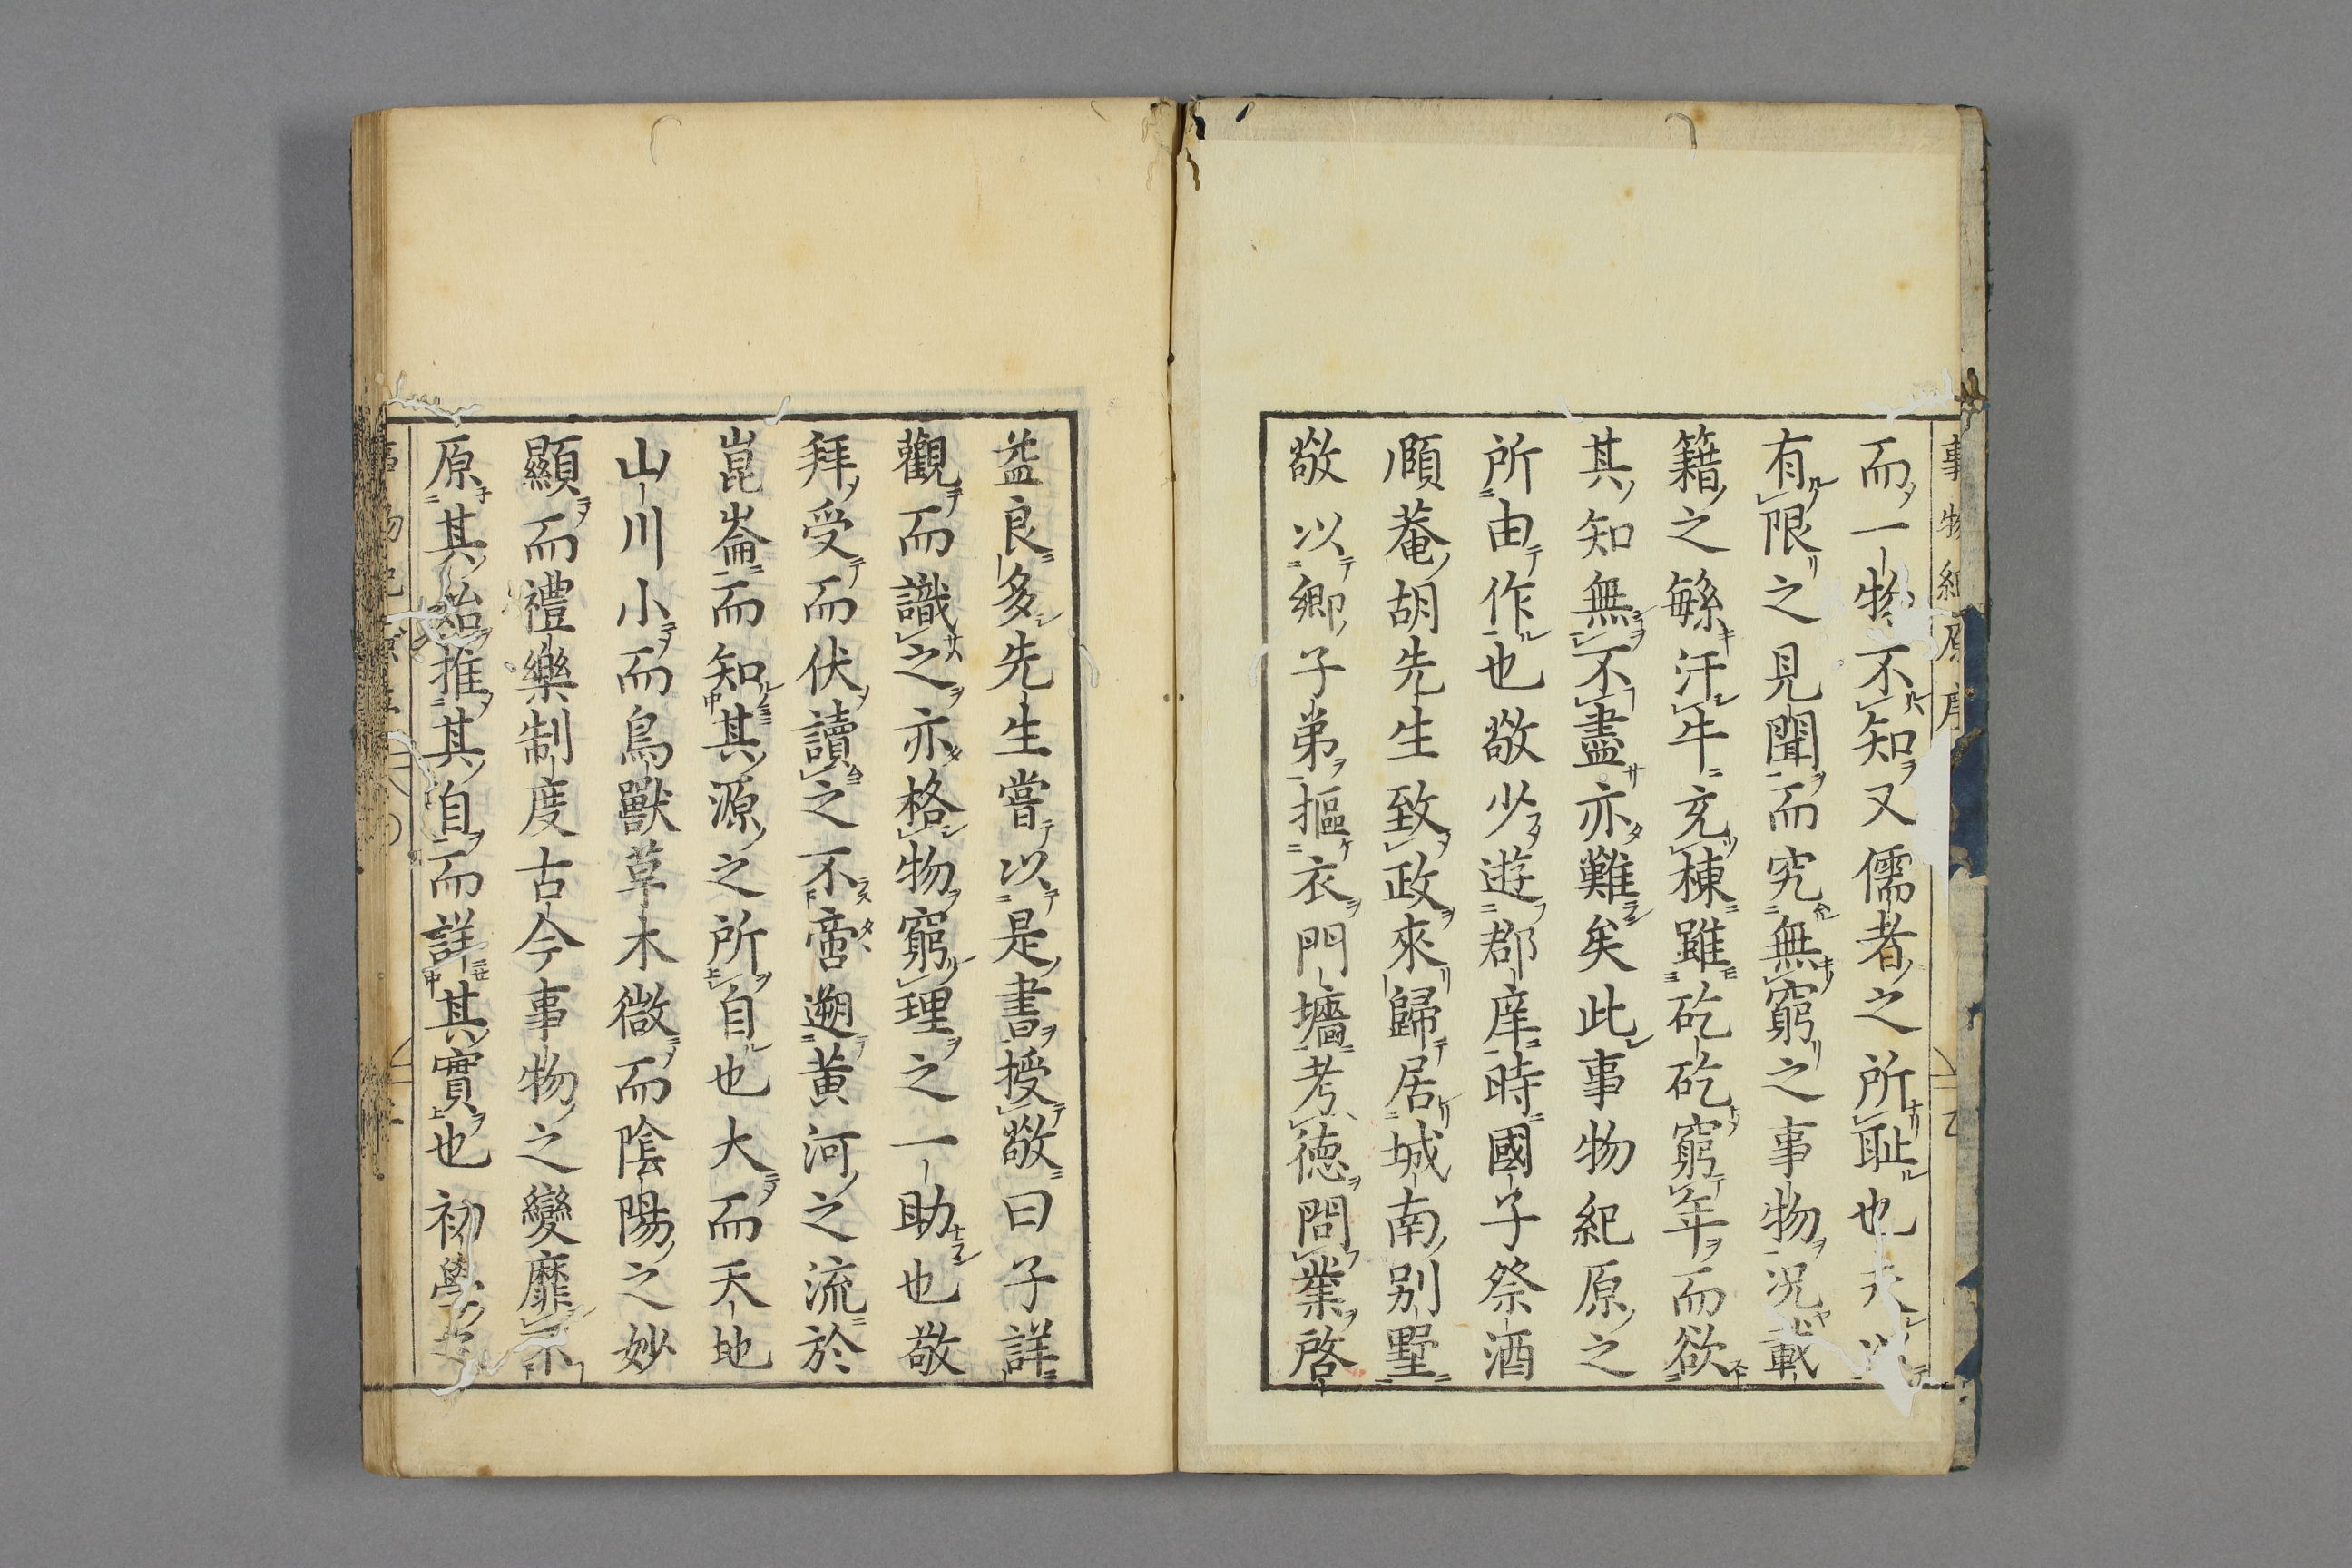 事物紀原序
而一物不知又儒者之所恥也夫以
有限之見聞而究無窮之事物況載
籍之繇汗牛充棟雖矻矻窮年而欲
其知無不盡亦難矣此事物紀原之
所由作也敬少遊郡庠時國子祭酒
頤菴胡先生致政來歸居城南別墅
敬以鄉子弟摳衣門墻考徳問業啓
益良多先生嘗以是書授敬曰子詳
觀而識之亦格物窮理之一助也敬
拜受而伏讀之不啻遡黃河之流於
崑崙而知其源之所自也大而天地
山川小而鳥獸草木微而陰陽之妙
顯而禮樂制度古今事物之變靡不
原其始推其自而詳其實也初學